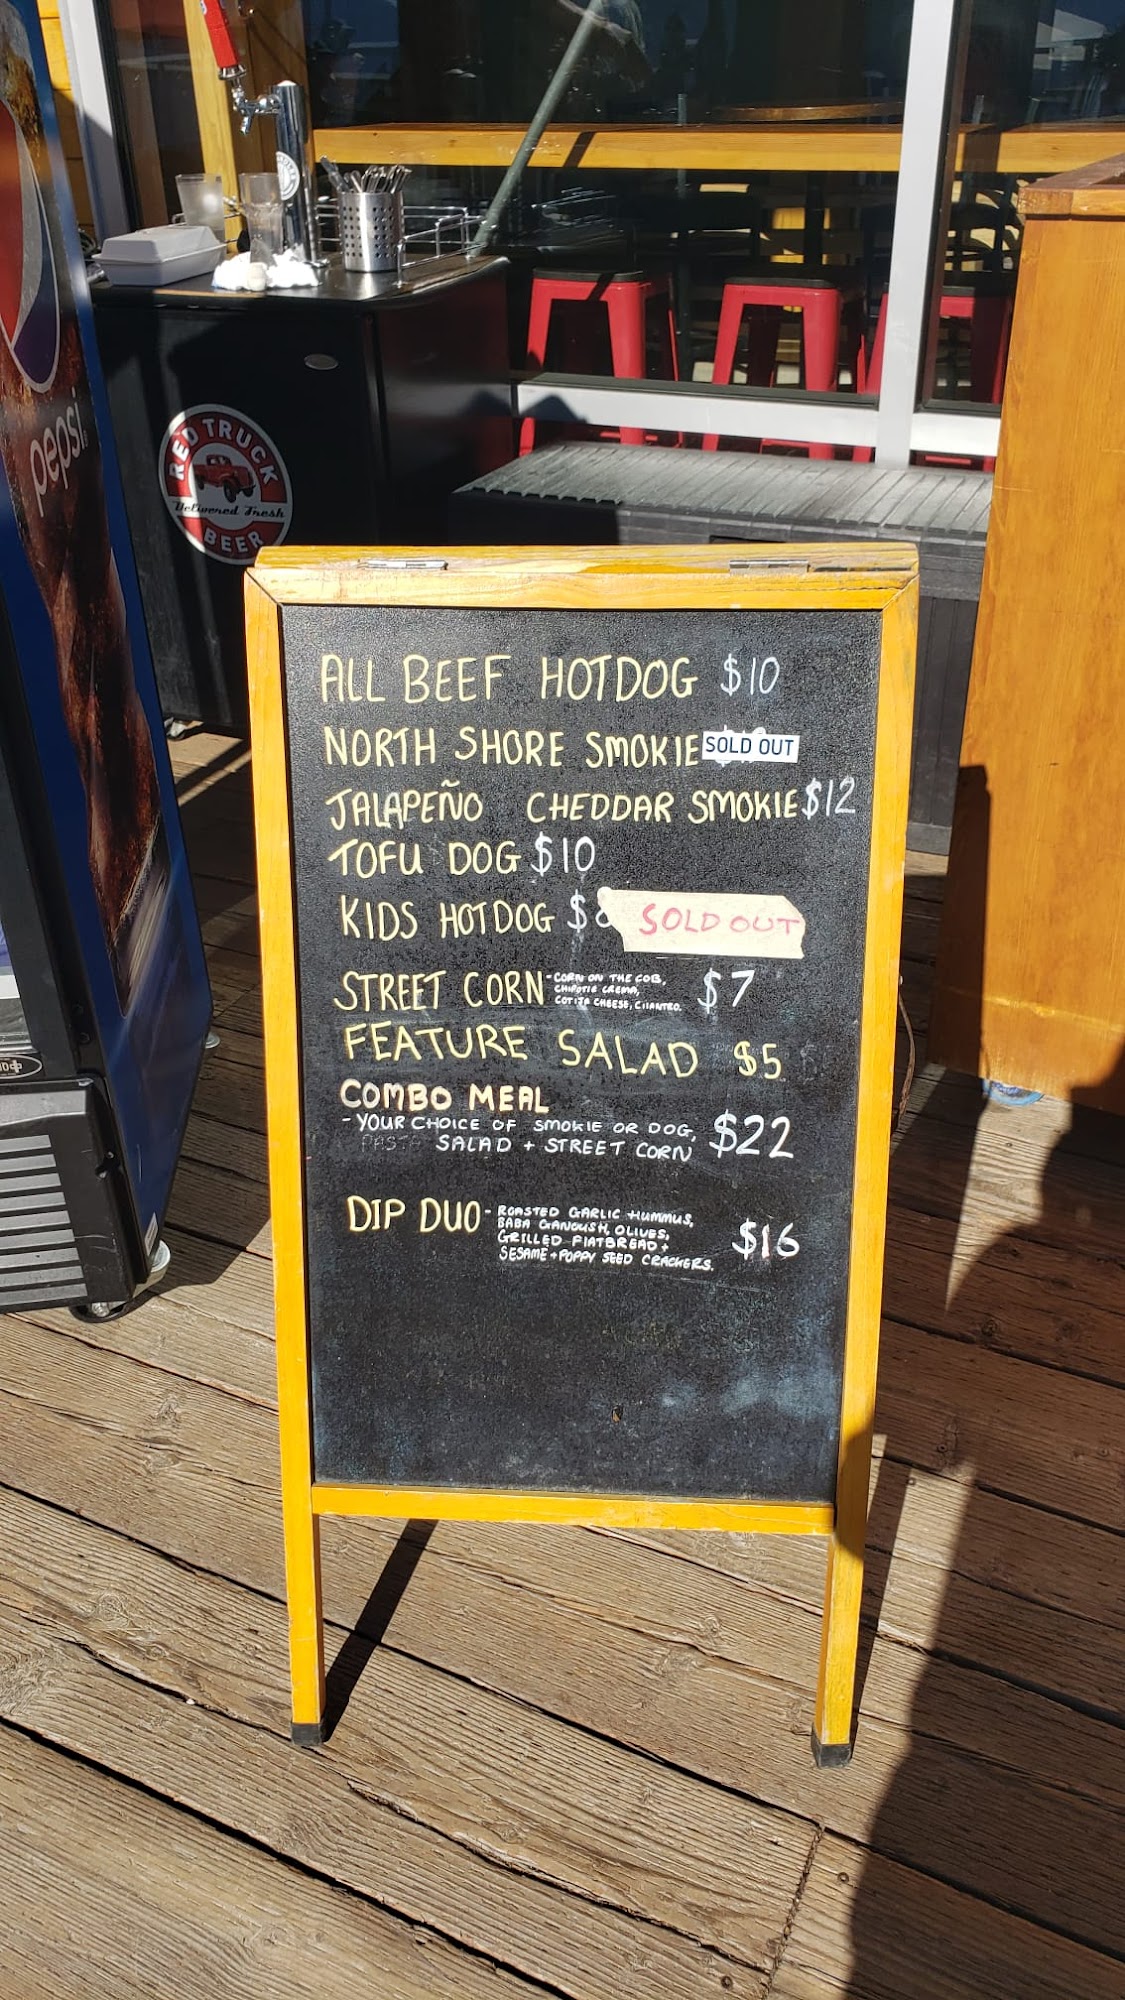 pepsi
RED TRUCK
Delivered Fresh
BEER
ALL BEEF HOTDOG $10
NORTH SHORE SMOKIE SOLD OUT
JALAPEÑO CHEDDAR SMOKIE $12
TOFU DOG $10
KIDS HOTDOG $8 SOLD OUT
STREET CORN - CORN ON THE COB, $7
CHIPOTLE CREMA,
COTIJA CHEESE, CILANTRO.
FEATURE SALAD $5
COMBO MEAL
- YOUR CHOICE OF SMOKIE OR DOG, $22
PASTA SALAD + STREET CORN
DIP DUO - ROASTED GARLIC HUMMUS,
BABA GANOUSH, OLIVES,
GRILLED FLATBREAD + $16
SESAME + POPPY SEED CRACKERS.